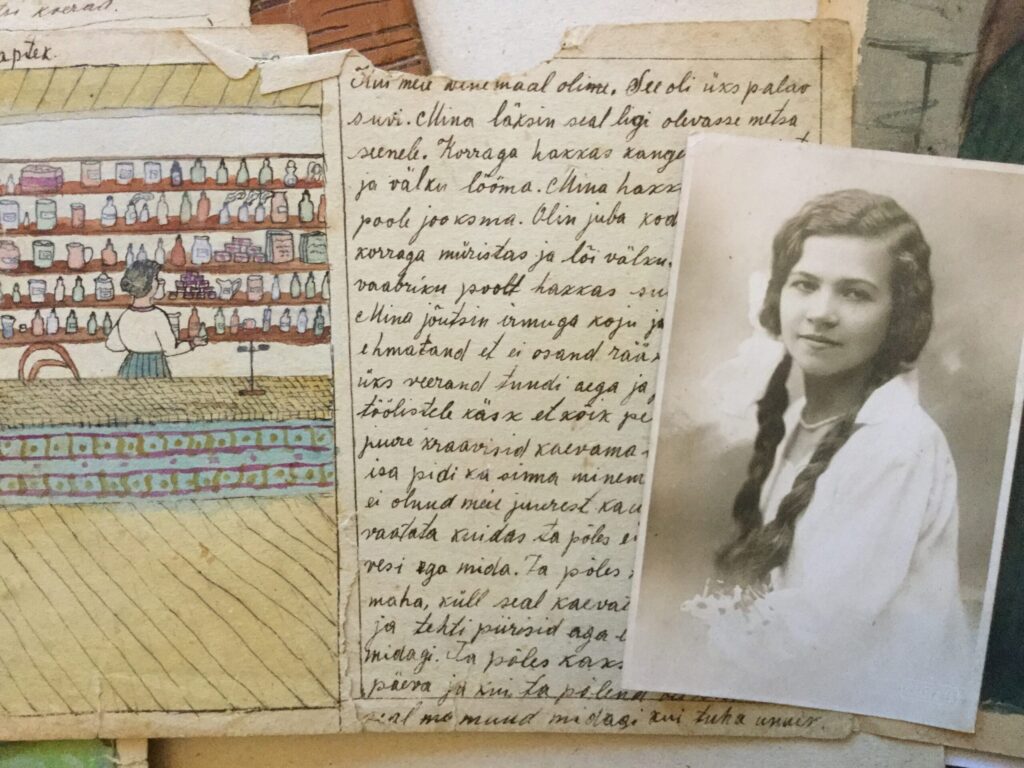 koerad.
aptek.
Kui meie wenemaal olime. See oli üks palav
suvi. Mina läksin seal ligi olevasse metsa
seenele. Korraga hakkas kange
ja välku lööma. Mina hakk
poole jooksma. Olin juba kod
korraga müristas ja lõi välku.
vaabriku poolt hakkas su
Mina jõutsin irmuga koju ja
ehmatand et ei osand rää
üks veerand tundi aega ja
töölistele käsk et kõik pe
juure kraavisid kaevama
isa pidi ka sinna minem
ei olnud meie juurest kau
vaatata kuidas ta põles ei
vesi ega mida. Ta põles
maha, küll seal kaevat
ja tehti piirisid aga e
midagi. Ta põles kaks
päeva ja kui ta põlend
seal ma muud midagi kui tuha unnik.